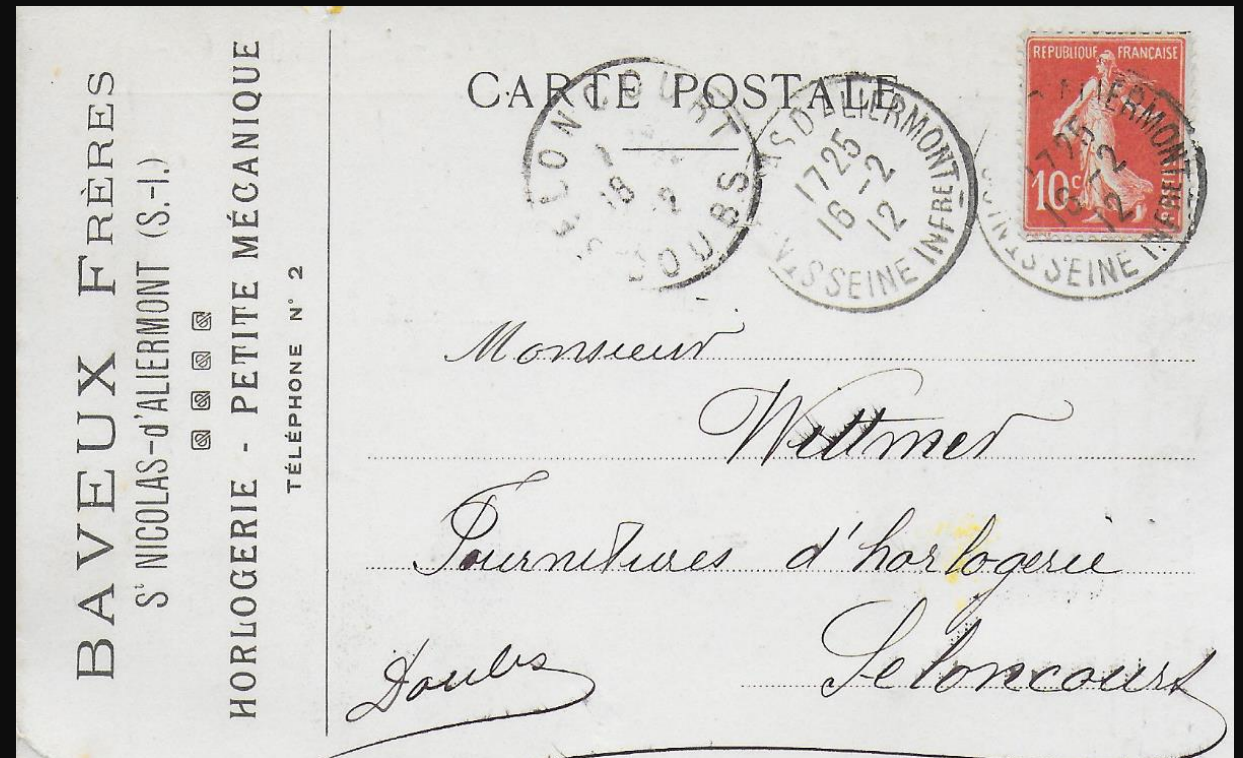 BAVEUX FRÈRES
St NICOLAS-d'ALIERMONT (S.-I.)
HORLOGERIE - PETITE MÉCANIQUE
TÉLÉPHONE N° 2
CARTE POSTALE
SELONCOURT
18
DOUBS
AS D'ALIERMONT
1725
16 -2
12
ST SEINE INFRE
REPUBLIQUE FRANÇAISE
10c
ALIERMONT
1725
16 -2
12
SEINE INFRE
Monsieur
Wittmer
Fournitures d'horlogerie
Seloncourt
Doubs